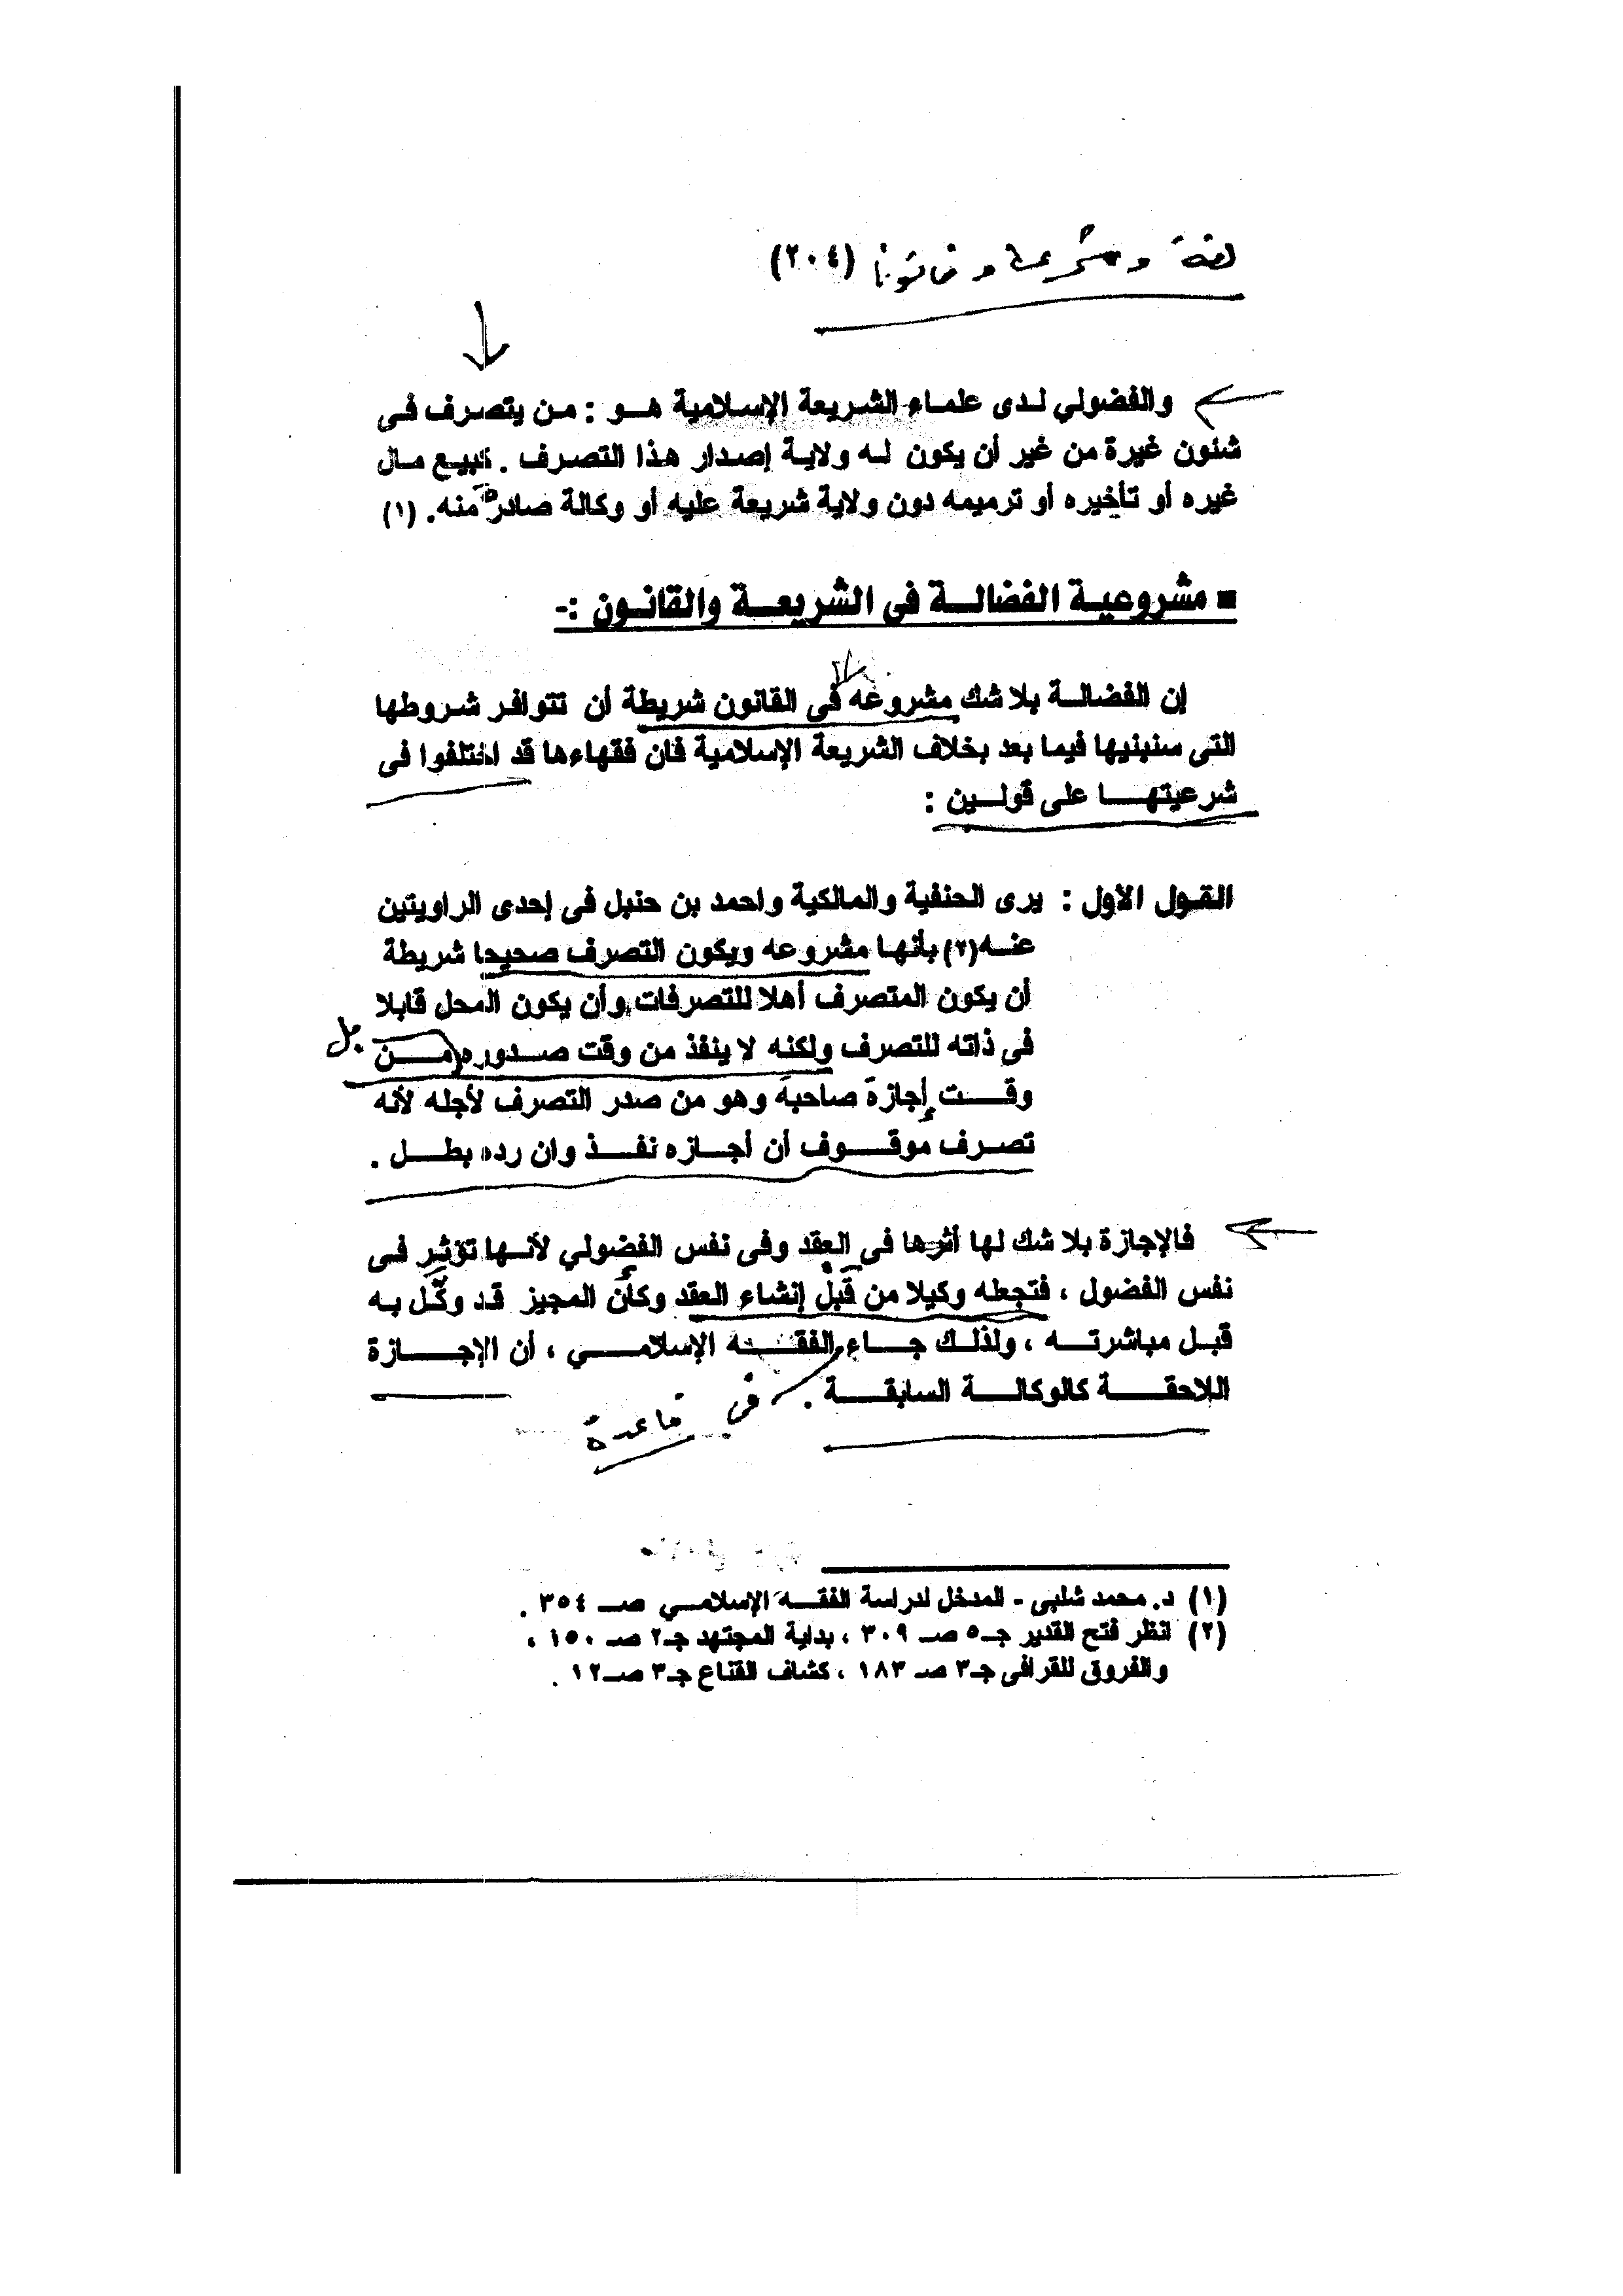 لغة وشريعة وقانونا (٢٠٤)
والفضولي لدى علماء الشريعة الإسلامية هو : من يتصرف فى
شئون غيرة من غير أن يكون له ولاية إصدار هذا التصرف . كبيع مال
غيره أو تأخيره أو ترميمه دون ولاية شريعة عليه أو وكالة صادرة منه. (١)
■ مشروعية الفضالة فى الشريعة والقانون :-
إن الفضالة بلا شك مشروعه فى القانون شريطة أن تتوافر شروطها
التى سنبنيها فيما بعد بخلاف الشريعة الإسلامية فان فقهاءها قد اختلفوا فى
شرعيتها على قولين :
القول الأول : يرى الحنفية والمالكية واحمد بن حنبل فى إحدى الراويتين
عنه(٢) بأنها مشروعه ويكون التصرف صحيحا شريطة
أن يكون المتصرف أهلا للتصرفات وأن يكون المحل قابلا
فى ذاته للتصرف ولكنه لا ينفذ من وقت صدوره بل من
وقت إجازة صاحبة وهو من صدر التصرف لأجله لأنه
تصرف موقوف أن أجازه نفذ وان رده بطل .
فالإجازة بلا شك لها أثرها فى العقد وفى نفس الفضولي لأنها تؤثر فى
نفس الفضول ، فتجعله وكيلا من قبل إنشاء العقد وكأن المجيز قد وكّل به
قبل مباشرته ، ولذلك جاء الفقه الإسلامي ، أن الإجازة
اللاحقة كالوكالة السابقة .
فى قاعدة
(١) د. محمد شلبى - المدخل لدراسة الفقه الإسلامي صـ ٣٥٤ .
(٢) انظر فتح القدير جـ٥ صـ ٣٠٩ ، بداية المجتهد جـ٢ صـ ١٥٠ ،
والفروق للقرافى جـ٣ صـ ١٨٣ ، كشاف القناع جـ٣ صـ١٢ .